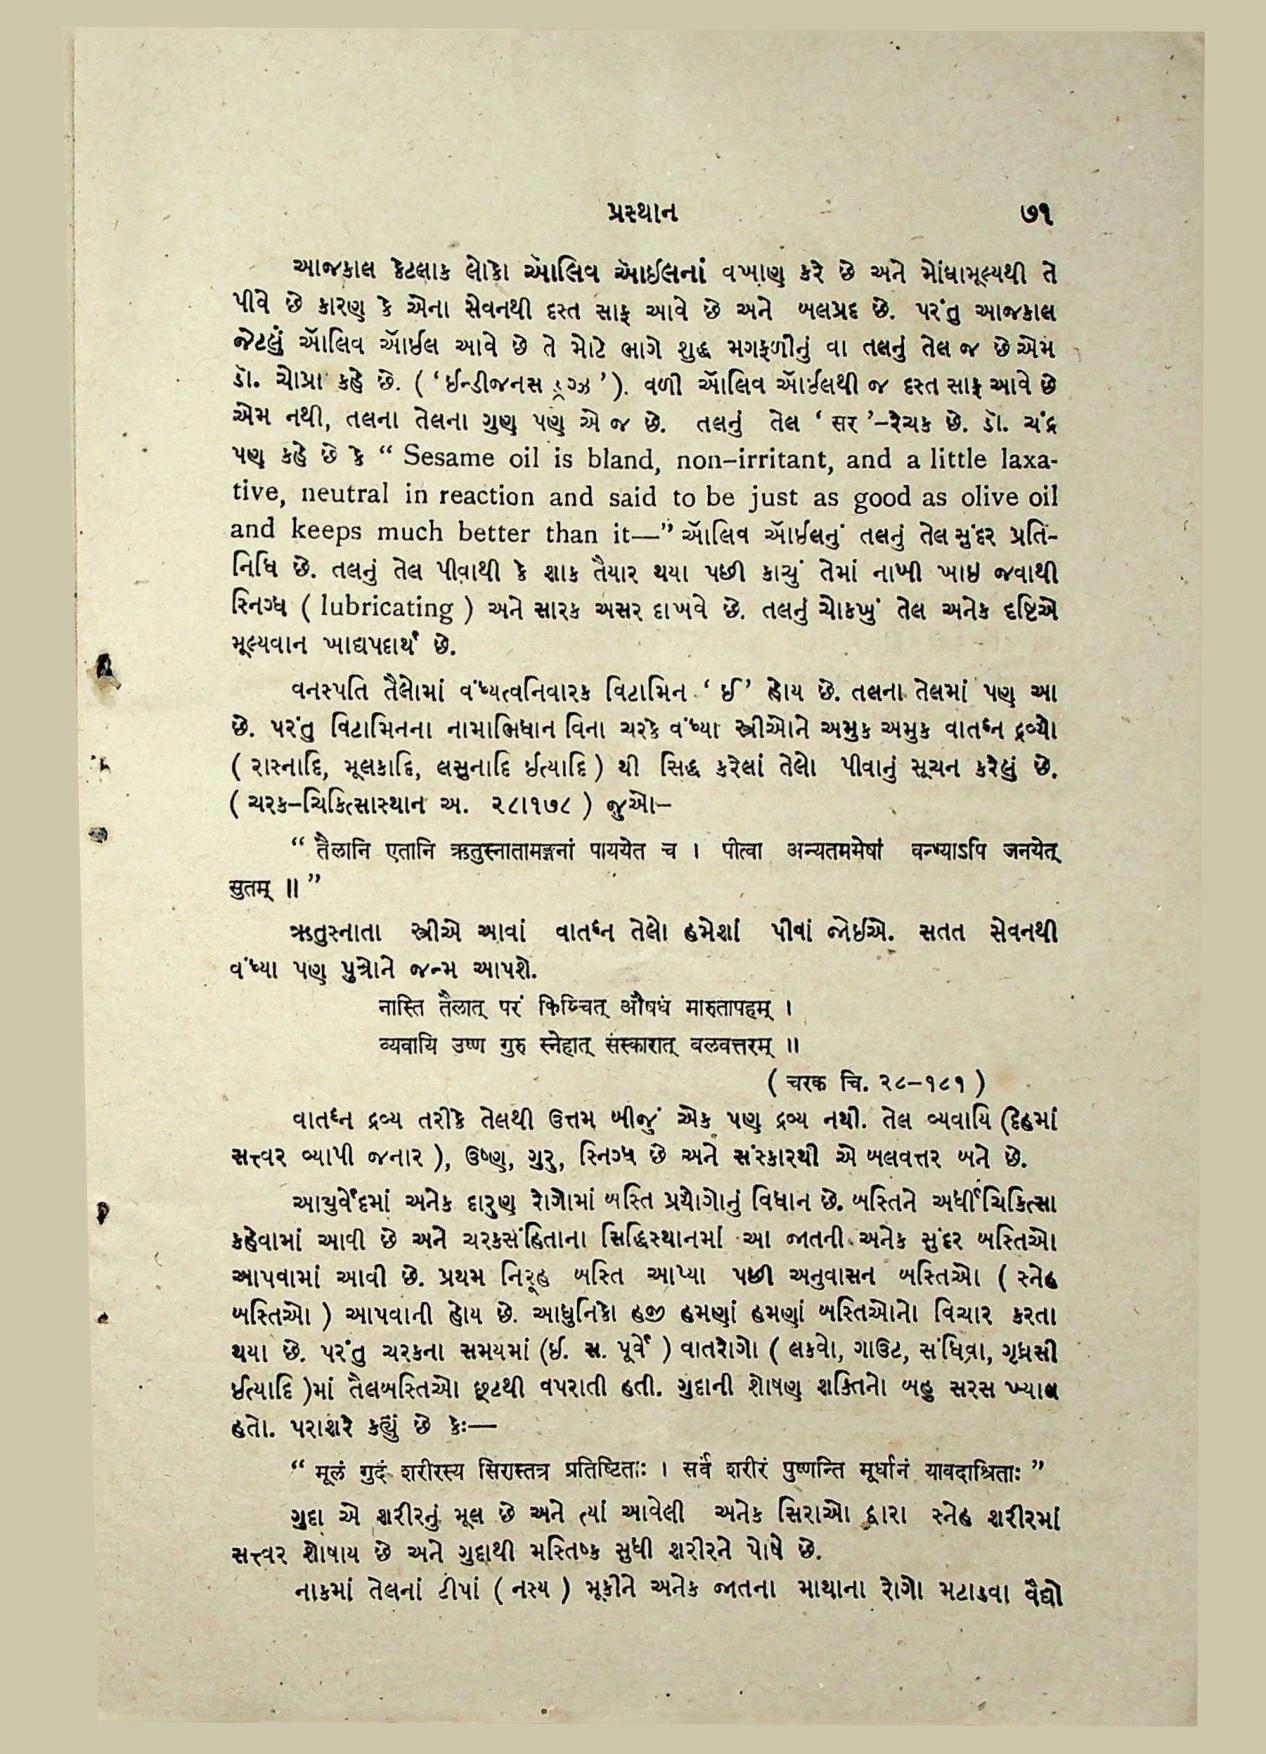 પ્રસ્થાન ૭૧
આજકાલ કેટલાક લોકો ઑલિવ ઑઇલનાં વખાણ કરે છે અને મોંઘામૂલ્યથી તે
પીવે છે કારણ કે એના સેવનથી દસ્ત સાફ આવે છે અને બલપ્રદ છે. પરંતુ આજકાલ
જેટલું ઑલિવ ઑઇલ આવે છે તે મોટે ભાગે શુદ્ધ મગફળીનું વા તલનું તેલ જ છે એમ
ડૉ. ચોપ્રા કહે છે. ( ‘ ઇન્ડીજનસ ડ્રગ્ઝ ’ ). વળી ઑલિવ ઑઇલથી જ દસ્ત સાફ આવે છે
એમ નથી, તલના તેલના ગુણ પણ એ જ છે. તલનું તેલ ‘ સર ’–રેચક છે. ડૉ. ચંદ્ર
પણ કહે છે કે “ Sesame oil is bland, non-irritant, and a little laxa-
tive, neutral in reaction and said to be just as good as olive oil
and keeps much better than it—” ઑલિવ ઑઇલનું તલનું તેલ સુંદર પ્રતિ-
નિધિ છે. તલનું તેલ પીવાથી કે શાક તૈયાર થયા પછી કાચું તેમાં નાખી ખાઇ જવાથી
સ્નિગ્ધ ( lubricating ) અને સારક અસર દાખવે છે. તલનું ચોક્ખું તેલ અનેક દૃષ્ટિએ
મૂલ્યવાન ખાદ્યપદાર્થ છે.
વનસ્પતિ તૈલોમાં વંધ્યત્વનિવારક વિટામિન ‘ ઈ ’ હોય છે. તલના તેલમાં પણ આ
છે. પરંતુ વિટામિનના નામાભિધાન વિના ચરકે વંધ્યા સ્ત્રીઓને અમુક અમુક વાતઘ્ન દ્રવ્યો
( રાસ્નાદિ, મૂલકાદિ, લસુનાદિ ઇત્યાદિ ) થી સિદ્ધ કરેલાં તેલો પીવાનું સૂચન કરેલું છે.
( ચરક–ચિકિત્સાસ્થાન અ. ૨૮।૧૭૮ ) જુઓ–
“ तैलानि एतानि ऋतुस्नातामङ्गनां पाययेत च । पीत्वा अन्यतममेषां वन्ध्याऽपि जनयेत्
सुतम् ॥ ”
ઋતુસ્નાતા સ્ત્રીએ આવાં વાતઘ્ન તેલો હમેશાં પીવાં જોઈએ. સતત સેવનથી
વંધ્યા પણ પુત્રોને જન્મ આપશે.
नास्ति तैलात् परं किञ्चित् औषधं मारुतापहम् ।
व्यवायि उष्ण गुरु स्नेहात् संस्कारात् बलवत्तरम् ॥
( चरक चि. २८–१८१ )
વાતઘ્ન દ્રવ્ય તરીકે તેલથી ઉત્તમ બીજું એક પણ દ્રવ્ય નથી. તેલ વ્યવાયિ (દેહમાં
સત્ત્વર વ્યાપી જનાર ), ઉષ્ણ, ગુરુ, સ્નિગ્ધ છે અને સંસ્કારથી એ બલવત્તર બને છે.
આયુર્વેદમાં અનેક દારુણ રોગોમાં બસ્તિ પ્રયોગોનું વિધાન છે. બસ્તિને અર્ધી ચિકિત્સા
કહેવામાં આવી છે અને ચરકસંહિતાના સિદ્ધિસ્થાનમાં આ જાતની અનેક સુંદર બસ્તિઓ
આપવામાં આવી છે. પ્રથમ નિરૂહ બસ્તિ આપ્યા પછી અનુવાસન બસ્તિઓ ( સ્નેહ
બસ્તિઓ ) આપવાની હોય છે. આધુનિકો હજી હમણાં હમણાં બસ્તિઓનો વિચાર કરતા
થયા છે. પરંતુ ચરકના સમયમાં (ઇ. સ. પૂર્વે ) વાતરોગો ( લકવો, ગાઉટ, સંધિવા, ગૃધ્રસી
ઇત્યાદિ )માં તૈલબસ્તિઓ છૂટથી વપરાતી હતી. ગુદાની શોષણ શક્તિનો બહુ સરસ ખ્યાલ
હતો. પરાશરે કહ્યું છે કેઃ—
“ मूलं गुदं शरीरस्य सिरास्तत्र प्रतिष्टिताः । सर्वं शरीरं पुष्णन्ति मूर्धानं यावदाश्रिताः ”
ગુદા એ શરીરનું મૂલ છે અને ત્યાં આવેલી અનેક સિરાઓ દ્વારા સ્નેહ શરીરમાં
સત્ત્વર શોષાય છે અને ગુદાથી મસ્તિષ્ક સુધી શરીરને પોષે છે.
નાકમાં તેલનાં ટીપાં ( નસ્ય ) મૂકીને અનેક જાતના માથાના રોગો મટાડવા વૈદ્યો